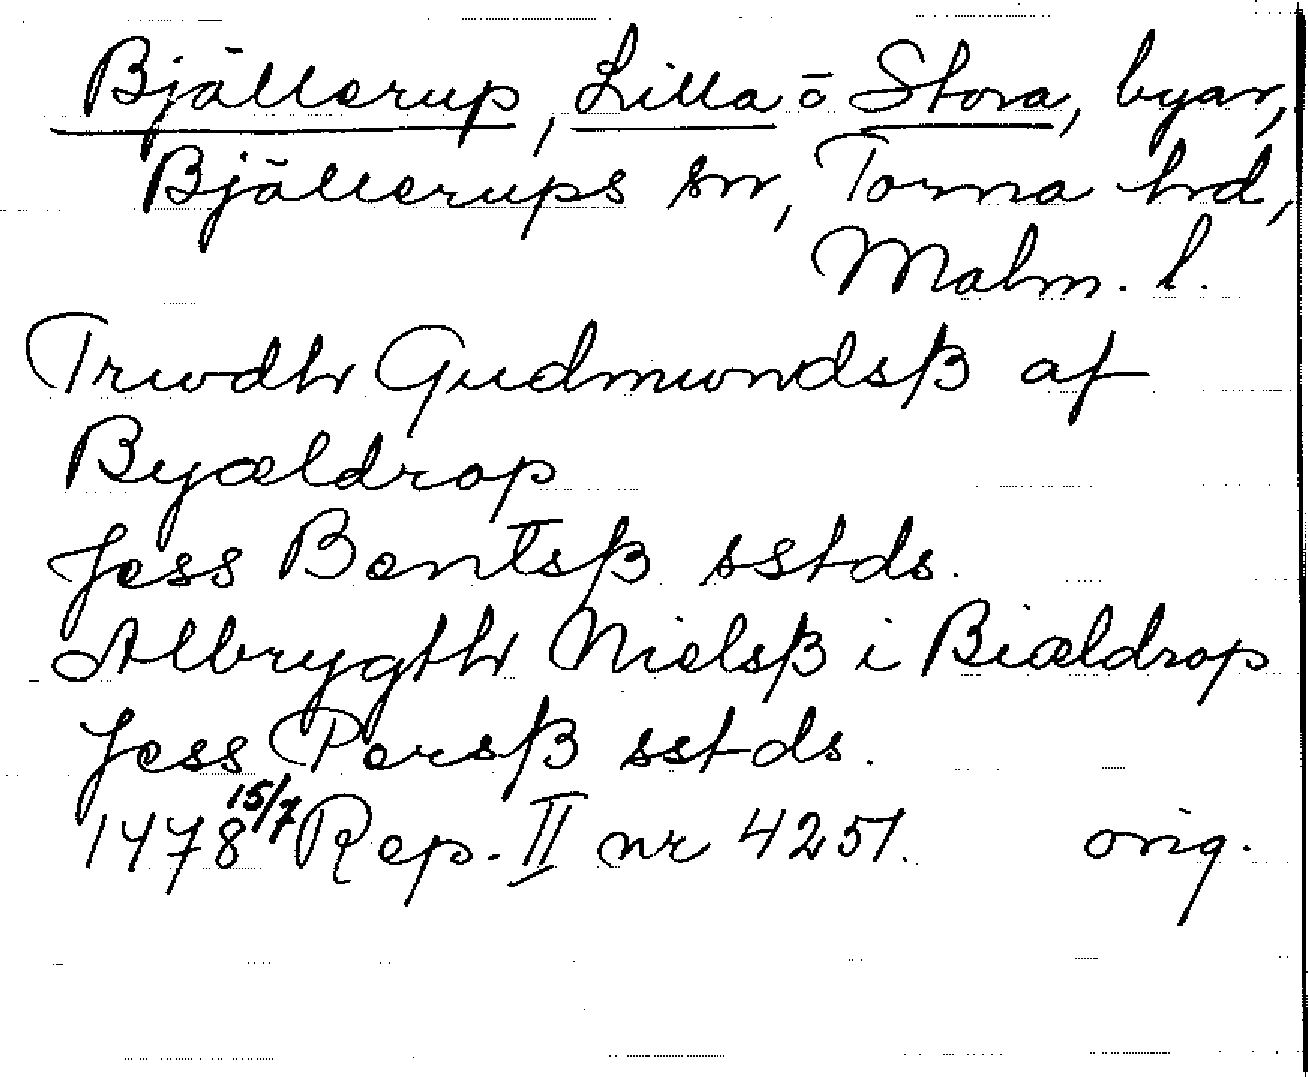 Bjällerup, Lilla o Stora, byar,
Bjällerups sn, Torna hrd,
Malm. l.
Trwdh Gudmwndsß af
Byældrop
Jess Bentsß sstds.
Albrygth Nielsß i Biældrop
Jess Persß sstds.
1478 15/7 Rep. II nr 4251. orig.